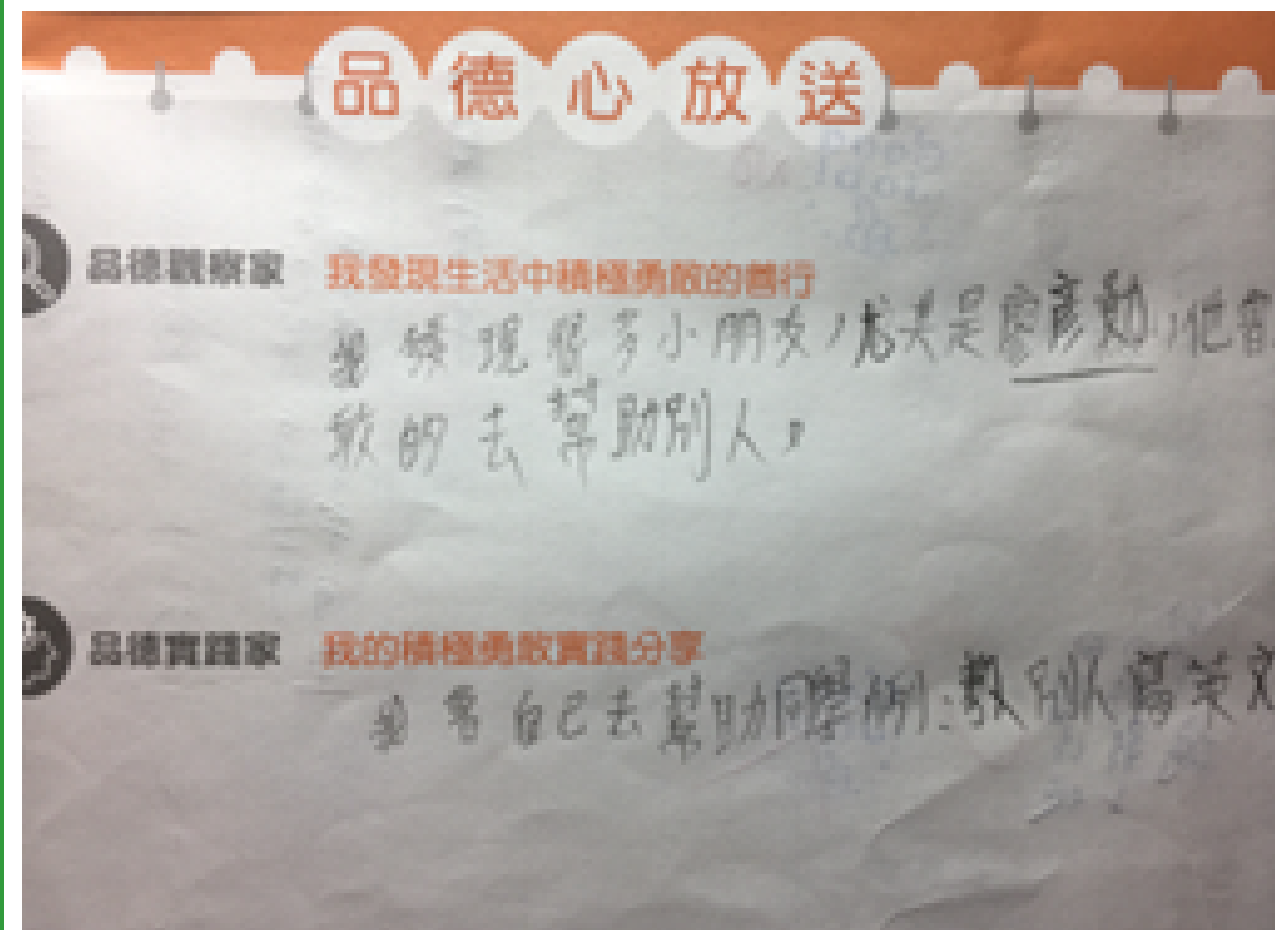 品德心放送
品德觀察家 我發現生活中積極勇敢的善行
發現很多小朋友,尤其是廖彥勳,他會
敢的去幫助別人。
品德實踐家 我的積極勇敢實踐分享
會自己去幫助同學例:教別人寫英文